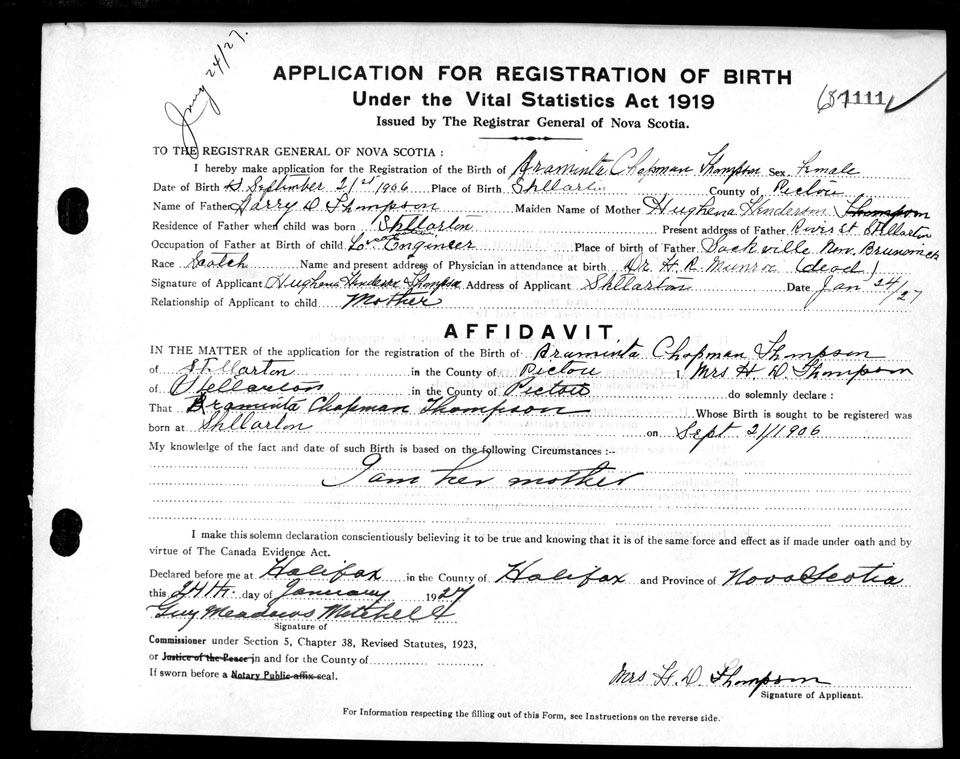 Jany 24/27.
APPLICATION FOR REGISTRATION OF BIRTH
Under the Vital Statistics Act 1919
Issued by The Registrar General of Nova Scotia.
1111
TO THE REGISTRAR GENERAL OF NOVA SCOTIA :
I hereby make application for the Registration of the Birth of Araminta Chapman Thompson Sex female
Date of Birth September 21st 1906 Place of Birth Stellarton County of Pictou
Name of Father Harry D Thompson Maiden Name of Mother Hughena Henderson Thompson
Residence of Father when child was born Stellarton Present address of Father River St. Stellarton
Occupation of Father at Birth of child Engineer Place of birth of Father Sackville New Brunswick
Race Scotch Name and present address of Physician in attendance at birth Dr. H. R Munroe (dead)
Signature of Applicant Hughena Henderson Thompson Address of Applicant Stellarton Date Jan 24/27
Relationship of Applicant to child Mother
AFFIDAVIT.
IN THE MATTER of the application for the registration of the Birth of Araminta Chapman Thompson
of Stellarton in the County of Pictou I, Mrs H. D. Thompson
of Stellarton in the County of Pictou do solemnly declare :
That Araminta Chapman Thompson Whose Birth is sought to be registered was
born at Stellarton on Sept 21/1906
My knowledge of the fact and date of such Birth is based on the following Circumstances :—
I am her mother
I make this solemn declaration conscientiously believing it to be true and knowing that it is of the same force and effect as if made under oath and by
virtue of The Canada Evidence Act.
Declared before me at Halifax in the County of Halifax and Province of Nova Scotia
this 24th day of January 1927
Guy Meadows Mitchell
Signature of
Commissioner under Section 5, Chapter 38, Revised Statutes, 1923,
or Justice of the Peace in and for the County of
If sworn before a Notary Public affix seal.
Mrs H. D. Thompson
Signature of Applicant.
For Information respecting the filling out of this Form, see Instructions on the reverse side.